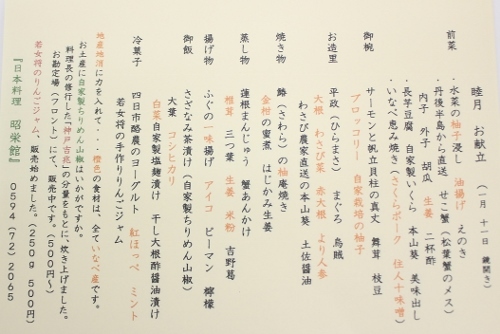 睦月　お献立　（一月　十一日　鏡開き）
前菜
・水菜の柚子浸し　油揚げ　えのき
・丹後半島から直送　せこ蟹（松葉蟹のメス）
内子　外子　胡瓜　生姜　二杯酢
・長芋豆腐　自家製いくら　本山葵　美味出し
・いなべ恵み焼き（さくらポーク　住人十味噌）
御椀
サーモンと帆立貝柱の真丈　舞茸　枝豆
ブロッコリー　自家栽培の柚子
お造里
平政（ひらまさ）　まぐろ　烏賊
大根　わさび菜　赤大根　より人参
わさび農家直送の本山葵　土佐醤油
焼き物
鰆（さわら）の柚庵焼き
金柑の蜜煮　はじかみ生姜
蒸し物
蓮根まんじゅう　蟹あんかけ
椎茸　三つ葉　生姜　米粉　吉野葛
揚げ物
ふぐの一味揚げ　アイコ　ピーマン　檸檬
御飯
さざなみ茶漬け（自家製ちりめん山椒）
大葉　コシヒカリ
白菜自家製塩麹漬け　干し大根酢醤油漬け
冷菓子
四日市酪農のヨーグルト　紅ほっぺ　ミント
若女将の手作りりんごジャム
地産地消に力を入れて、・・橙色の食材は、全ていなべ産です。
お土産に自家製ちりめん山椒はいかがですか。
料理長の修行した「神戸吉兆」の分量をもとに、炊き上げました。
お勘定場（フロント）にて、販売中です。（500円〜）
若女将のりんごジャム、販売始めました。（250g　500円）
『日本料理　昭栄館』　0594（72）2065